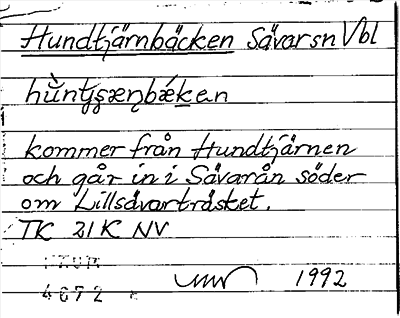 Hundtjärnbäcken Sävar sn Vbl
kommer från Hundtjärnen
och går in i Sävarån söder
om Lillsävarträsket.
TK 21K NV
1992